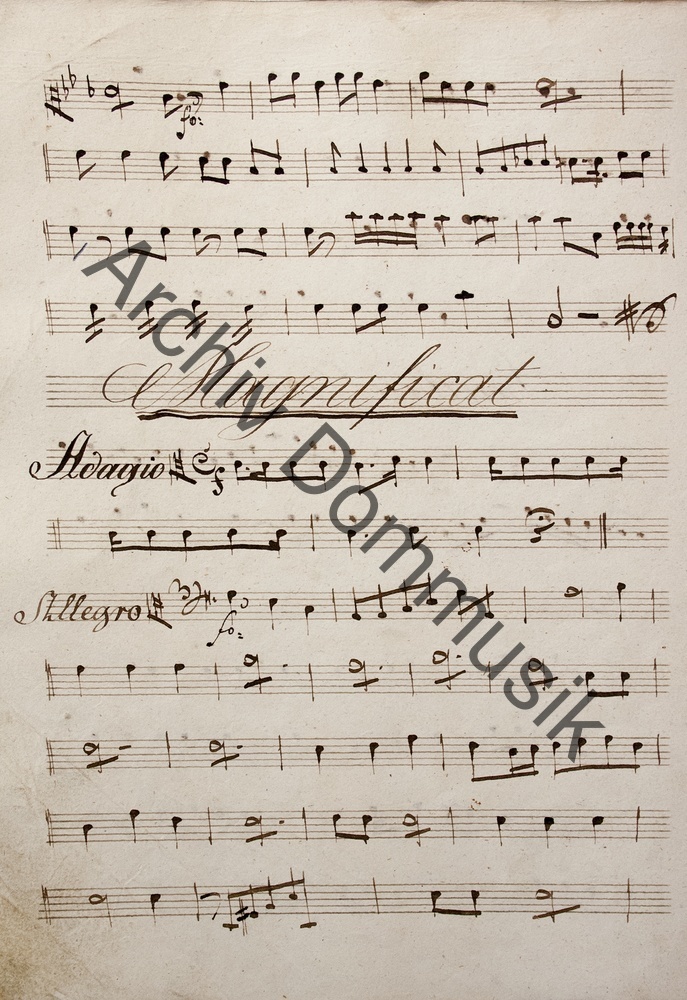 fo:
Magnificat
Adagio
f
Allegro
fo:
Archiv Dommusik